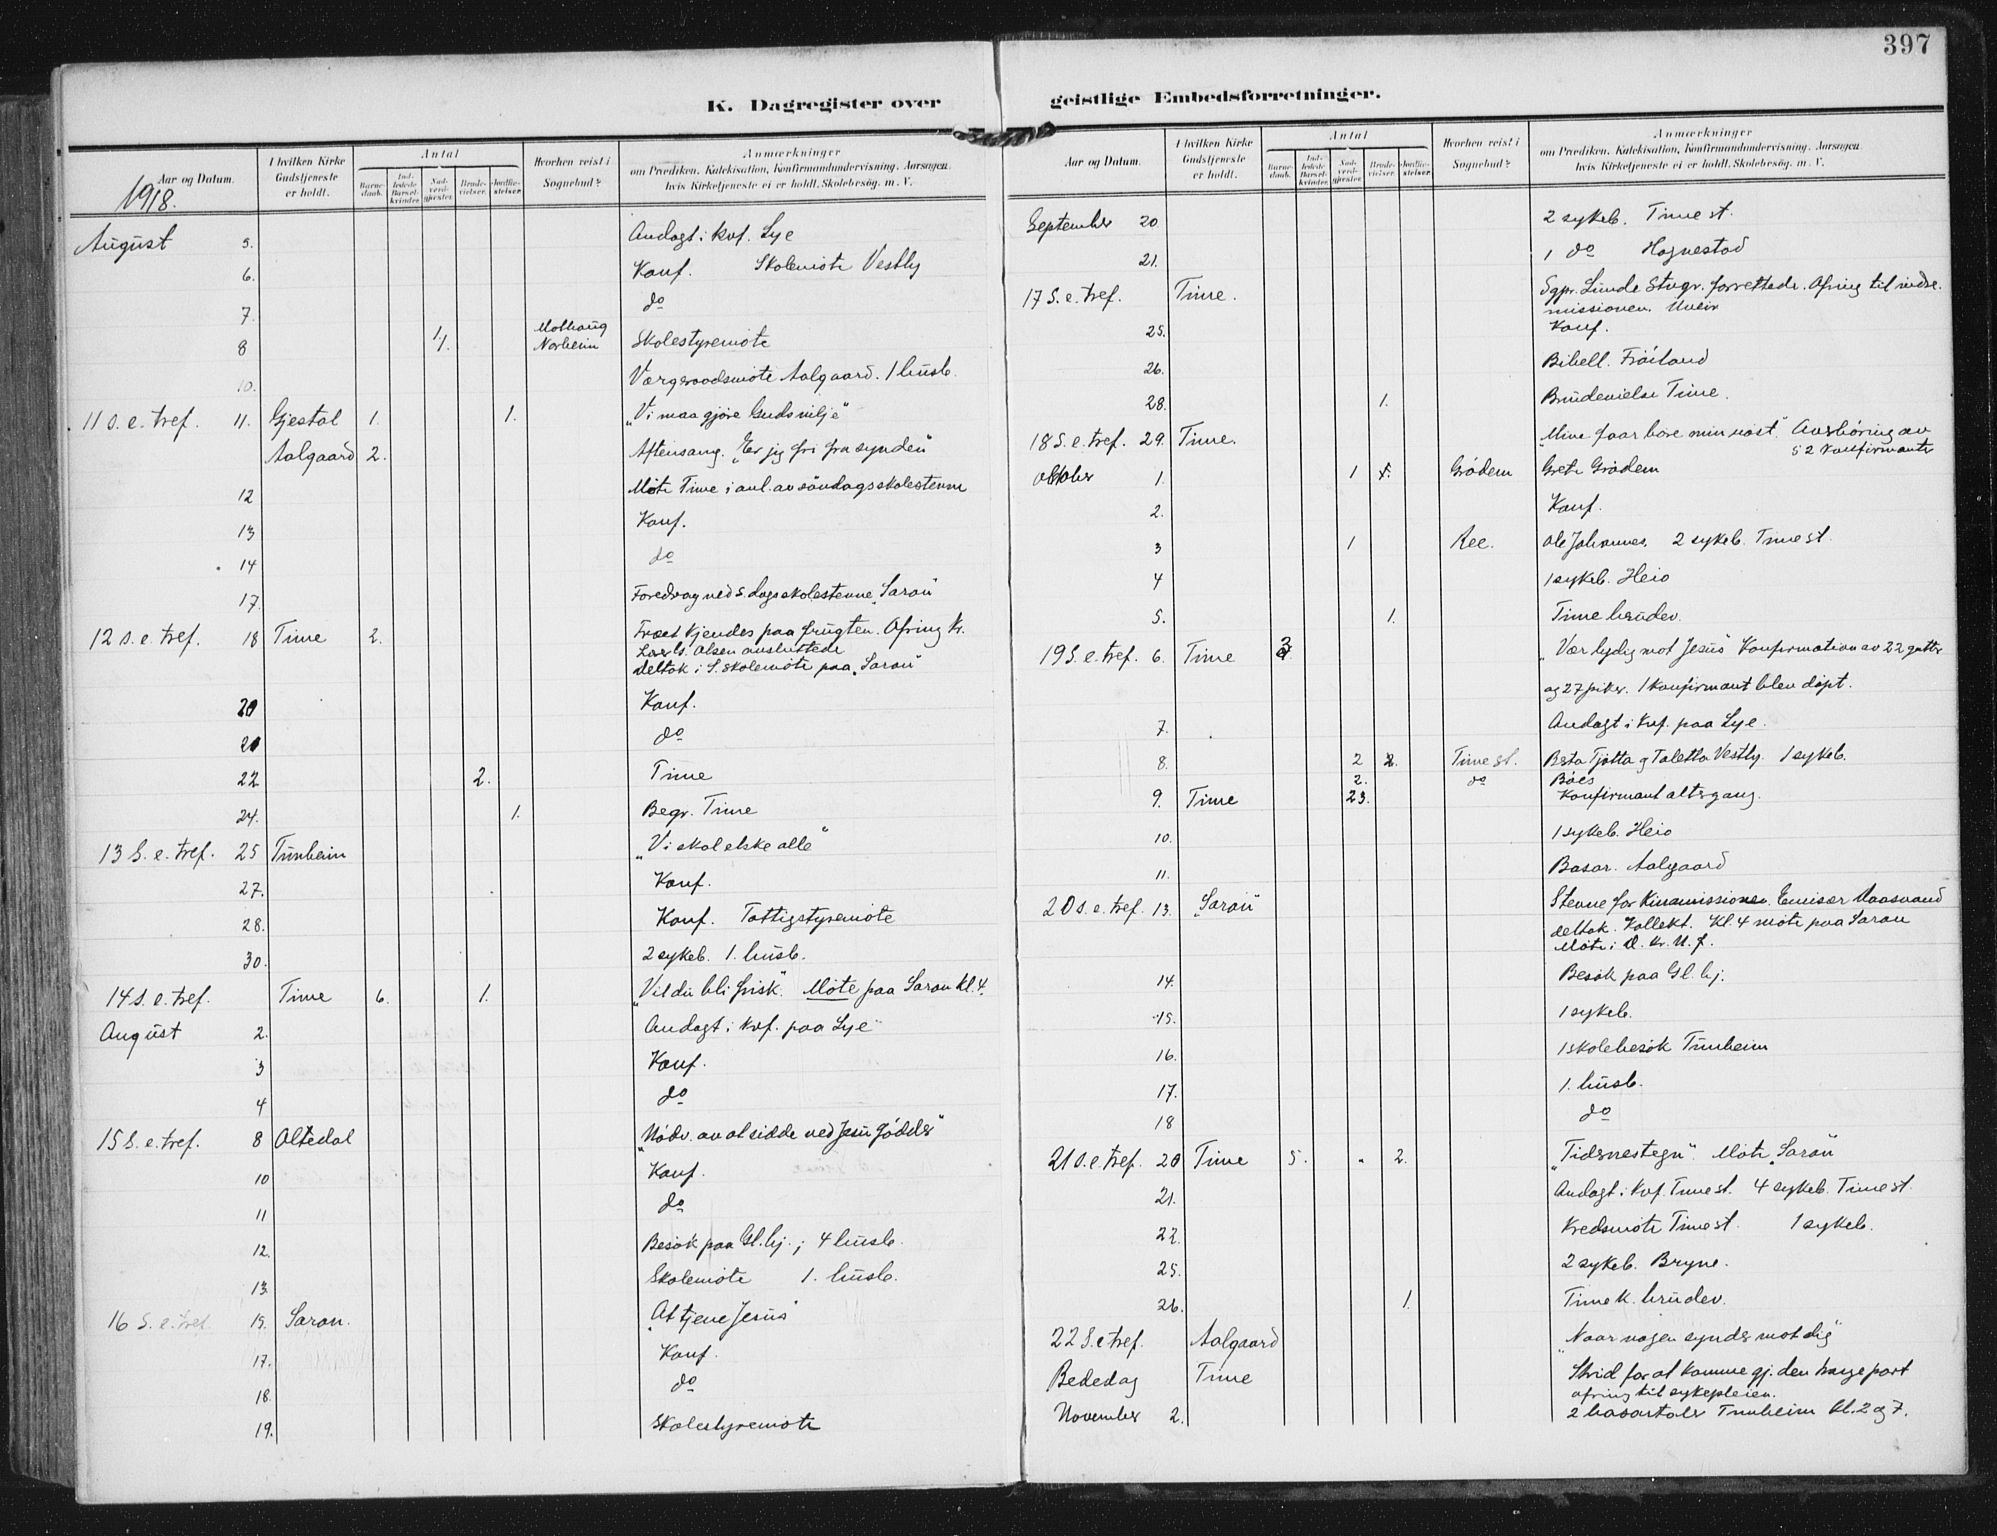 397
K. Dagregister over
geistlige Embedsforretninger.
Aar og Datum.
I hvilken Kirke Gudstjeneste er holdt.
Antal
Barne-daab.
Ind-ledede Barsel-kvinder.
Nad-verd-gjester.
Brude-vielser.
Jordfæ-stelser.
Hvorhen reist i Sognebud?
Anmærkninger
om Prædiken, Katekisation, Konfirmandundervisning, Aarsagen
hvis Kirketjeneste ei er holdt, Skolebesøg. m. V.
1918.
August 5. Andagt i kvf. Lye
6. Konf. Skolemöte Vestly
7. do
8 1/1. Mothaug Norheim Skolestyremöte
10. Værgeraadsmöte Aalgaard. 1 husb.
11 s. e. tref. 11. Gjestal 1. 1. "Vi maa gjöre Guds vilje"
Aalgaard 2. Aftensang. "Er jeg fri fra synden"
12 Möte Time i anl. av söndagsskolestevne
13 Konf.
14 do
17. Foredrag ved s.dagsskolestevne "Saron"
12 s. e. tref. 18 Time 2. Træet kjendes paa frugten. Ofring kr.
Olsen avsluttede
deltok i S. skolemöte paa "Saron"
20 Konf.
21 do
22 2. Time
24. 1. Begr. Time
13 S. e. tref. 25 Tunheim "Vi skal elske alle"
27. Konf.
28. Konf. Fattigstyremöte
30. 2 sykeb. 1. husb.
14 s. e. tref. Time 6. 1. "Vil du bli frisk." Möte paa Saron kl. 4.
August 2. Andagt i kvf. paa Lye
3 Konf.
4 do
15 S. e. tref. 8 Oltedal "Nödv. av at sidde ved Jesu födder"
10 Konf.
11 do
12. Besök paa Gl. hj.; 4 husb.
13. Skolemöte 1. husb.
16 S. e. tref. 15. Saron. "At tjene Jesus"
17. Konf.
18. do
19. Skolestyremöte
Aar og Datum.
I hvilken Kirke Gudstjeneste er holdt.
Antal
Barne-daab.
Ind-ledede Barsel-kvinder.
Nad-verd-gjester.
Brude-vielser.
Jordfæ-stelser.
Hvorhen reist i Sognebud?
Anmærkninger
om Prædiken, Katekisation, Konfirmandundervisning, Aarsagen
hvis Kirketjeneste ei er holdt, Skolebesög. m. V.
September 20. 2 sykeb. Time st.
21. 1 do Hognestad
17 S. e. tref. Time. Sgpr. Lunde Stvgr. forrettede. Ofring til indre-
missionen. Uveir
25. Konf.
26. Bibell. Fröiland
28. 1. Brudevielse Time.
18 S. e. tref. 29. Time. "Mine faar höre min röst." Overhöring av
52 konfirmanter
Oktober 1. 1 1. Grödem Grete Grödem
2. Konf.
3 1 Ree. Ole Johannes. 2 sykeb. Time st.
4 1 sykeb. Heio
5. 1. Time brudev.
19 S. e. tref. 6. Time 3 "Vær lydig mot Jesus" Konfirmation av 22 gutter
og 27 piker. 1 konfirmant blev döpt.
7. Andagt i kvf. paa Lye.
8. 2 2. Time st. Berta Tjötta og Taletta Vestly. 1 sykeb.
2. do Böes
9. Time 23. Konfirmant altergang.
10. 1 sykeb. Heio
11. Basar. Aalgaard
20 s. e. tref. 13. "Saron" Stevne for Kinamissionen. Emisær Haasvand
deltok. Kollekt. Kl. 4 möte paa Saron
Möte i D. Kr. U. f.
14. Besök paa Gl. hj.
15. 1 sykeb.
16. 1 skolebesök Tunheim
17. 1. husb.
18 do
21 s. e. tref. 20 Time 5. 2. "Tidernes tegn". Möte "Saron"
21. Andagt i kvf. Time st. 4 sykeb. Time st.
22. Kredsmöte Time st. 1 sykeb.
25. 2 sykeb. Bryne.
26. 1. Time k. brudev.
22 S. e. tref. Aalgaard "Naar nogen synder mot dig"
Bededag Time Strid for at komme gj. den trange port
ofring til sykepleien.
November 2. 2 basartaler Tunheim kl. 2 og 7.